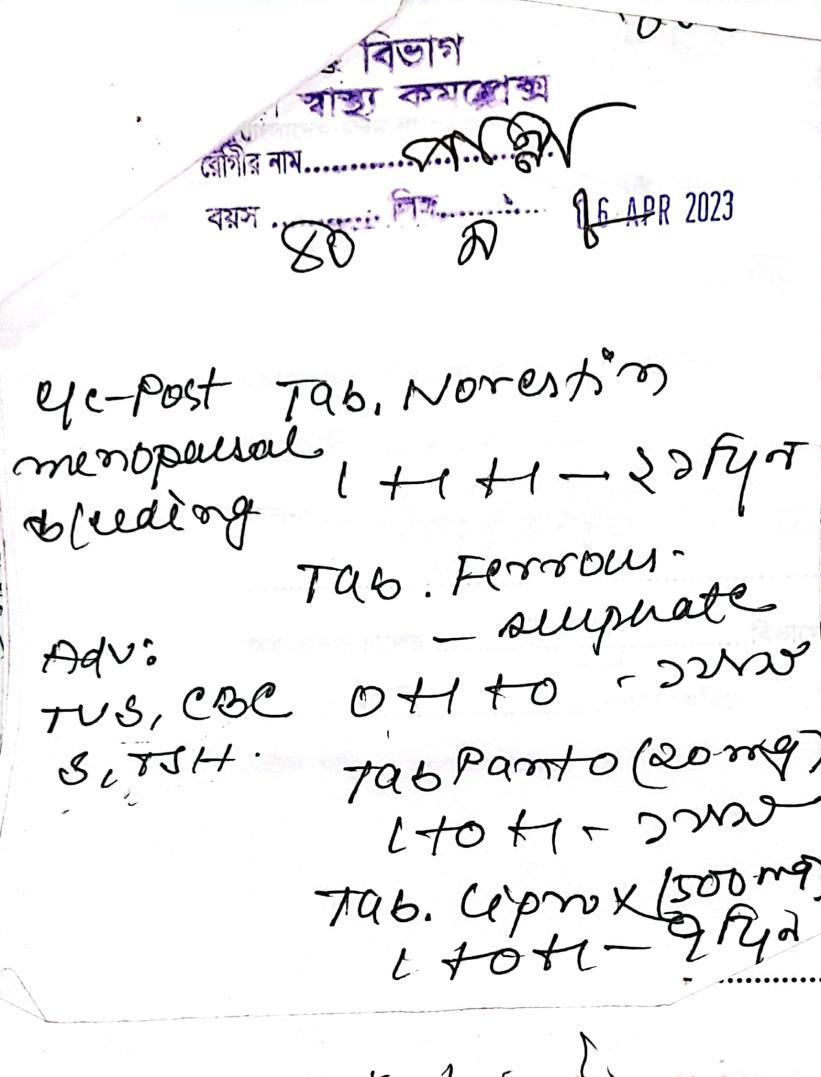 বিভাগ
স্বাস্থ্য কমপ্লেক্স
রোগীর নাম..............................
বয়স ............... লিঙ্গ...............
৪০ ম 16 APR 2023
c/c-Post menopausal bleeding
Adv:
TVS, CBC
S, TSH.
Tab. Norestin
1+1+1 — ২১দিন
Tab. Ferrous-
— sulphate
0+1+0 - ১মাস
Tab Panto (20mg)
1+0+1 - ১মাস
Tab. Ciprox (500mg)
1+0+1 — ৭দিন